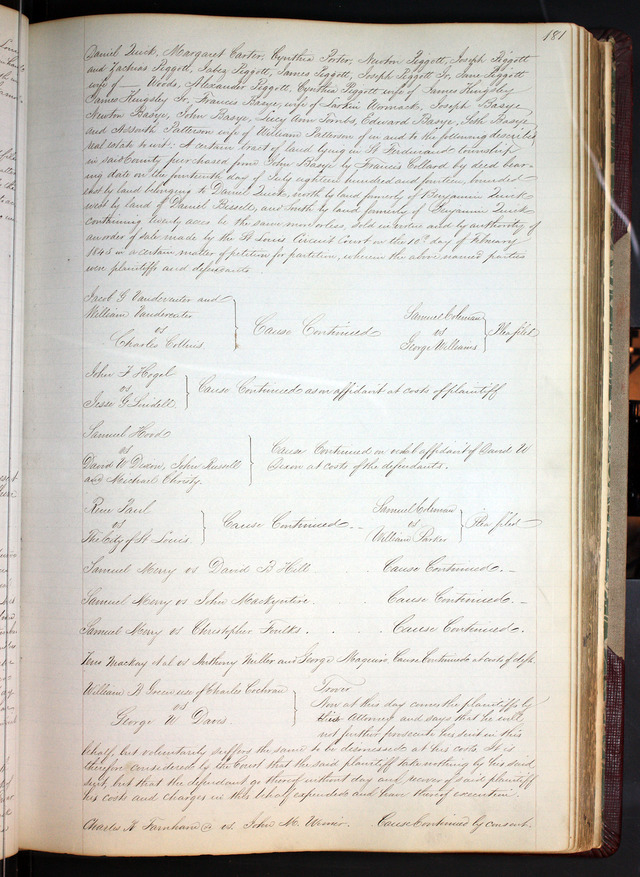 181
Daniel Quick, Margaret Carter, Cynthia Porter, Newton Piggott, Joseph Piggott
and Zachias Piggott, Jabez Piggott, James Piggott, Joseph Piggott Jr, Jane Piggott
wife of — Woods, Alexander Piggott, Cynthia Piggott wife of James Kingsley
James Kingsley Jr, Francis Basye, wife of Larkin Wommack, Joseph Basye
Newton Basye, John Basye, Lucy Ann Tombs, Edward Basye, Seth Basye
and Asenath Patterson wife of William Patterson of in and to the following described
real estate to wit: A certain tract of land lying in St Ferdinand township
in said County purchased from John Basye by Francis Collard by deed bear-
ing date on the fourteenth day of July eighteen hundred and fourteen, bounded
east by land belonging to Daniel Quick, north by land formerly of Benjamin Quick
west by land of Daniel Bissell, and South by land formerly of Benjamin Quick
containing twenty acres be the same more or less, sold in virtue and by authority of
an order of sale made by the St Louis Circuit Court on the 10th day of February
1845 in a certain matter of petition for partition, wherein the above named parties
were plaintiffs and defendants.
Jacob G Vandeventer and
William Vandeventer
vs
Charles Collins
Cause Continued
Samuel Coleman
vs
George Williams
Plea filed
John F Hogel
vs
Jesse G Lindell
Cause Continued as on affidavit at costs of plaintiff
Samuel Hood
vs
David W Dixon, John Russell
and Michael Christy.
Cause Continued on affidavit of David W
Dixon at costs of the defendants.
Rene Paul
vs
The City of St Louis
Cause Continued.
Samuel Coleman
vs
William Parker
Plea filed
Samuel Merry vs David B Hill Cause Continued.
Samuel Merry vs John Mackyntire. Cause Continued.
Samuel Merry vs Christopher Foulks. Cause Continued.
Zeno Mackay et al vs Anthony Miller and George Maguire, Cause Continued at costs of defts.
William B Green use of Charles Cochran
vs
George W Davis.
Trover
Now at this day comes the plaintiff by
his Attorney and says that he will
not further prosecute his suit in this
behalf, but voluntarily suffers the same to be dismissed at his costs. It is
therefore considered by the Court that the said plaintiff take nothing by his said
suit, but that the defendant go thereof without day and recover of said plaintiff
his costs and charges in this behalf expended and have thereof execution.
Charles H Farnham vs. John M. Wimer. Cause Continued by consent.